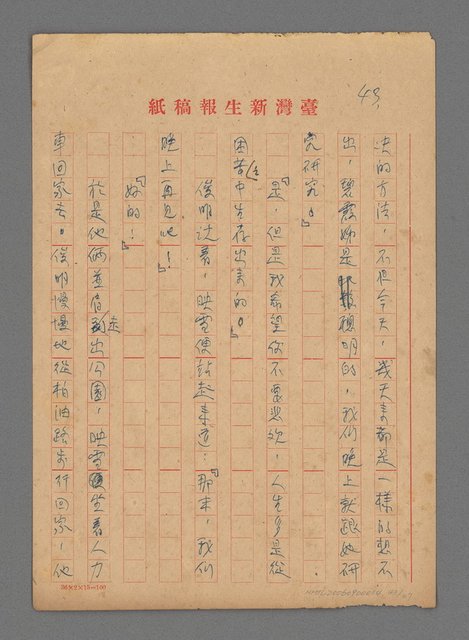 49,
臺灣新生報稿紙
決的方法，不但今天，幾天來都是一樣的想不
出，碧霞姊是聰明的，我們晚上就跟她研
究研究。』
『是，但是我希望你不要悲觀，人生多是從
困苦中生存出來的。』
俊明說着，映雪便站起來道：『那末，我們
晚上再見吧！』
『好的！』
於是他倆並肩走出公園，映雪坐着人力
車回家去。俊明慢慢地從柏油路步行回家，他